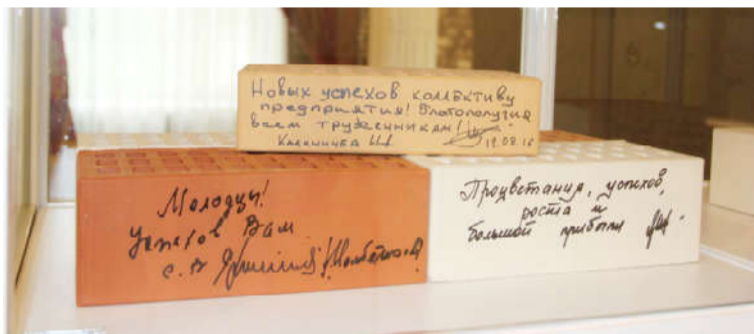 Новых успехов коллективу
предприятия! Благополучия
всем труженикам!
19.08.16
Молодцы!
Успехов Вам
С.В.
Процветания, успехов,
роста и
большой прибыли